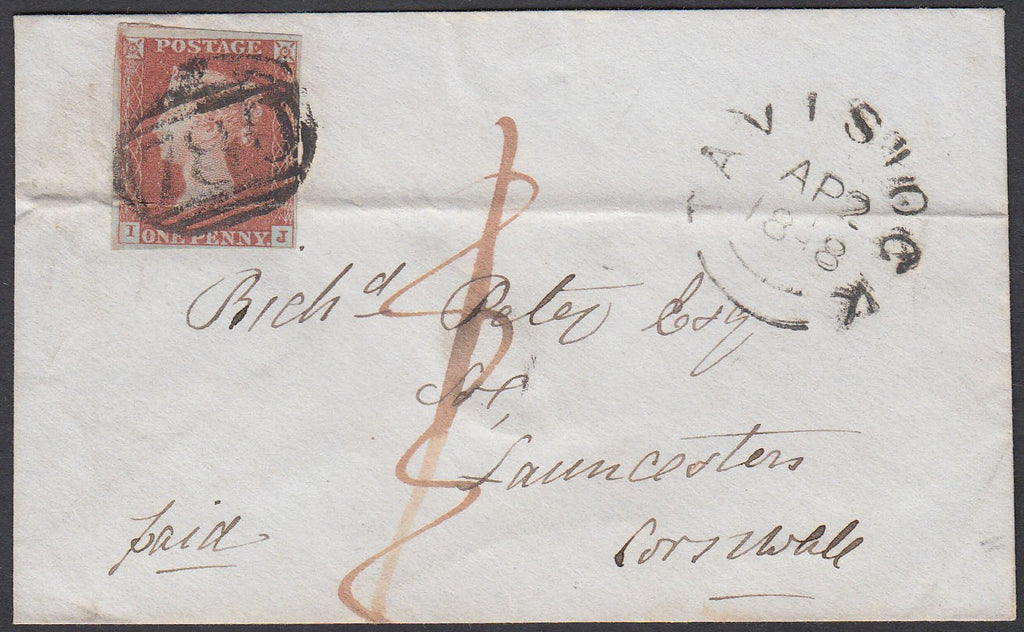 POSTAGE
I ONE PENNY. J
TAVISTOCK
AP 2
1848
Richd Peter Esq
Launceston
Cornwall
Paid